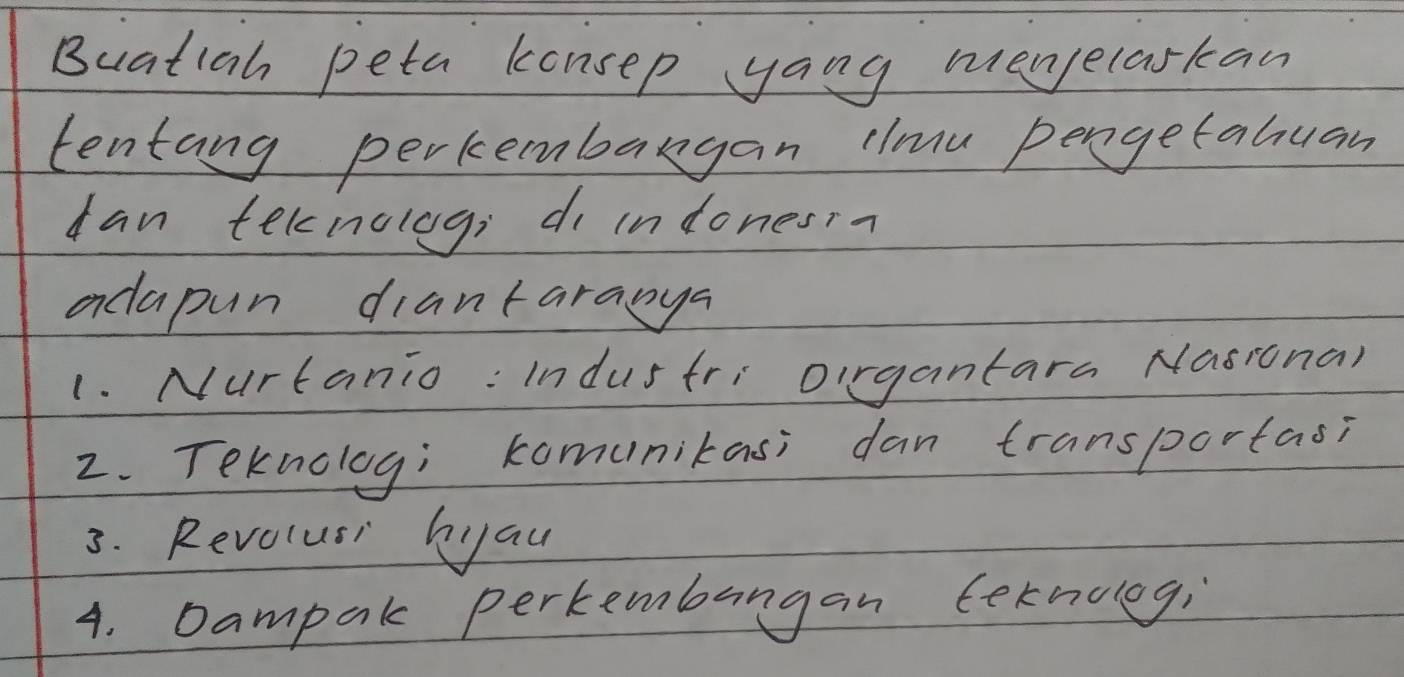 Buatlah peta konsep yang menjelaskan
tentang perkembangan ilmu pengetahuan
dan teknologi di indonesia
adapun diantaranya
1. Nurtanio : industri Dirgantara Nasional
2. Teknologi komunikasi dan transportasi
3. Revolusi hijau
4. Dampak perkembangan teknologi